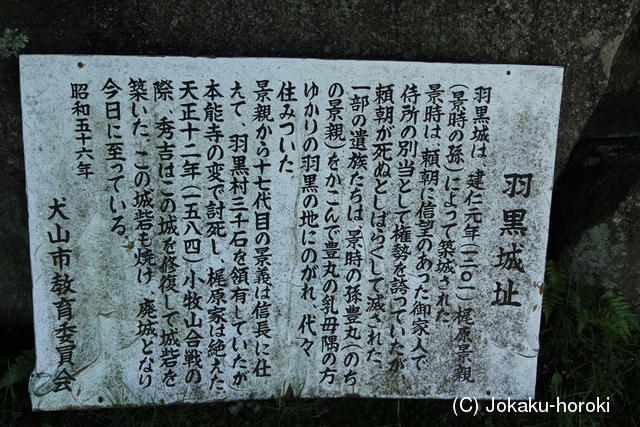 羽黒城址
羽黒城は、建仁元年(一二〇一)梶原景親
(景時の孫)によって築城された。
景時は、頼朝に信望のあった御家人で
侍所の別当として権勢を誇っていたが
頼朝が死ぬとしばらくして滅された。
一部の遺族たちは、景時の孫豊丸(のち
の景親)をかこんで豊丸の乳母隅の方
ゆかりの羽黒の地にのがれ、代々
住みついた
景親から十七代目の景義は信長に仕
えて、羽黒村三千石を領有していたが
本能寺の変で討死し、梶原家は絶えた。
天正十二年(一五八四)小牧山合戦の
際、秀吉はこの城を修復して城砦を
築いた。この城砦も焼け、廃城となり
今日に至っている。
昭和五十六年
犬山市教育委員会
(C) Jokaku-horoki